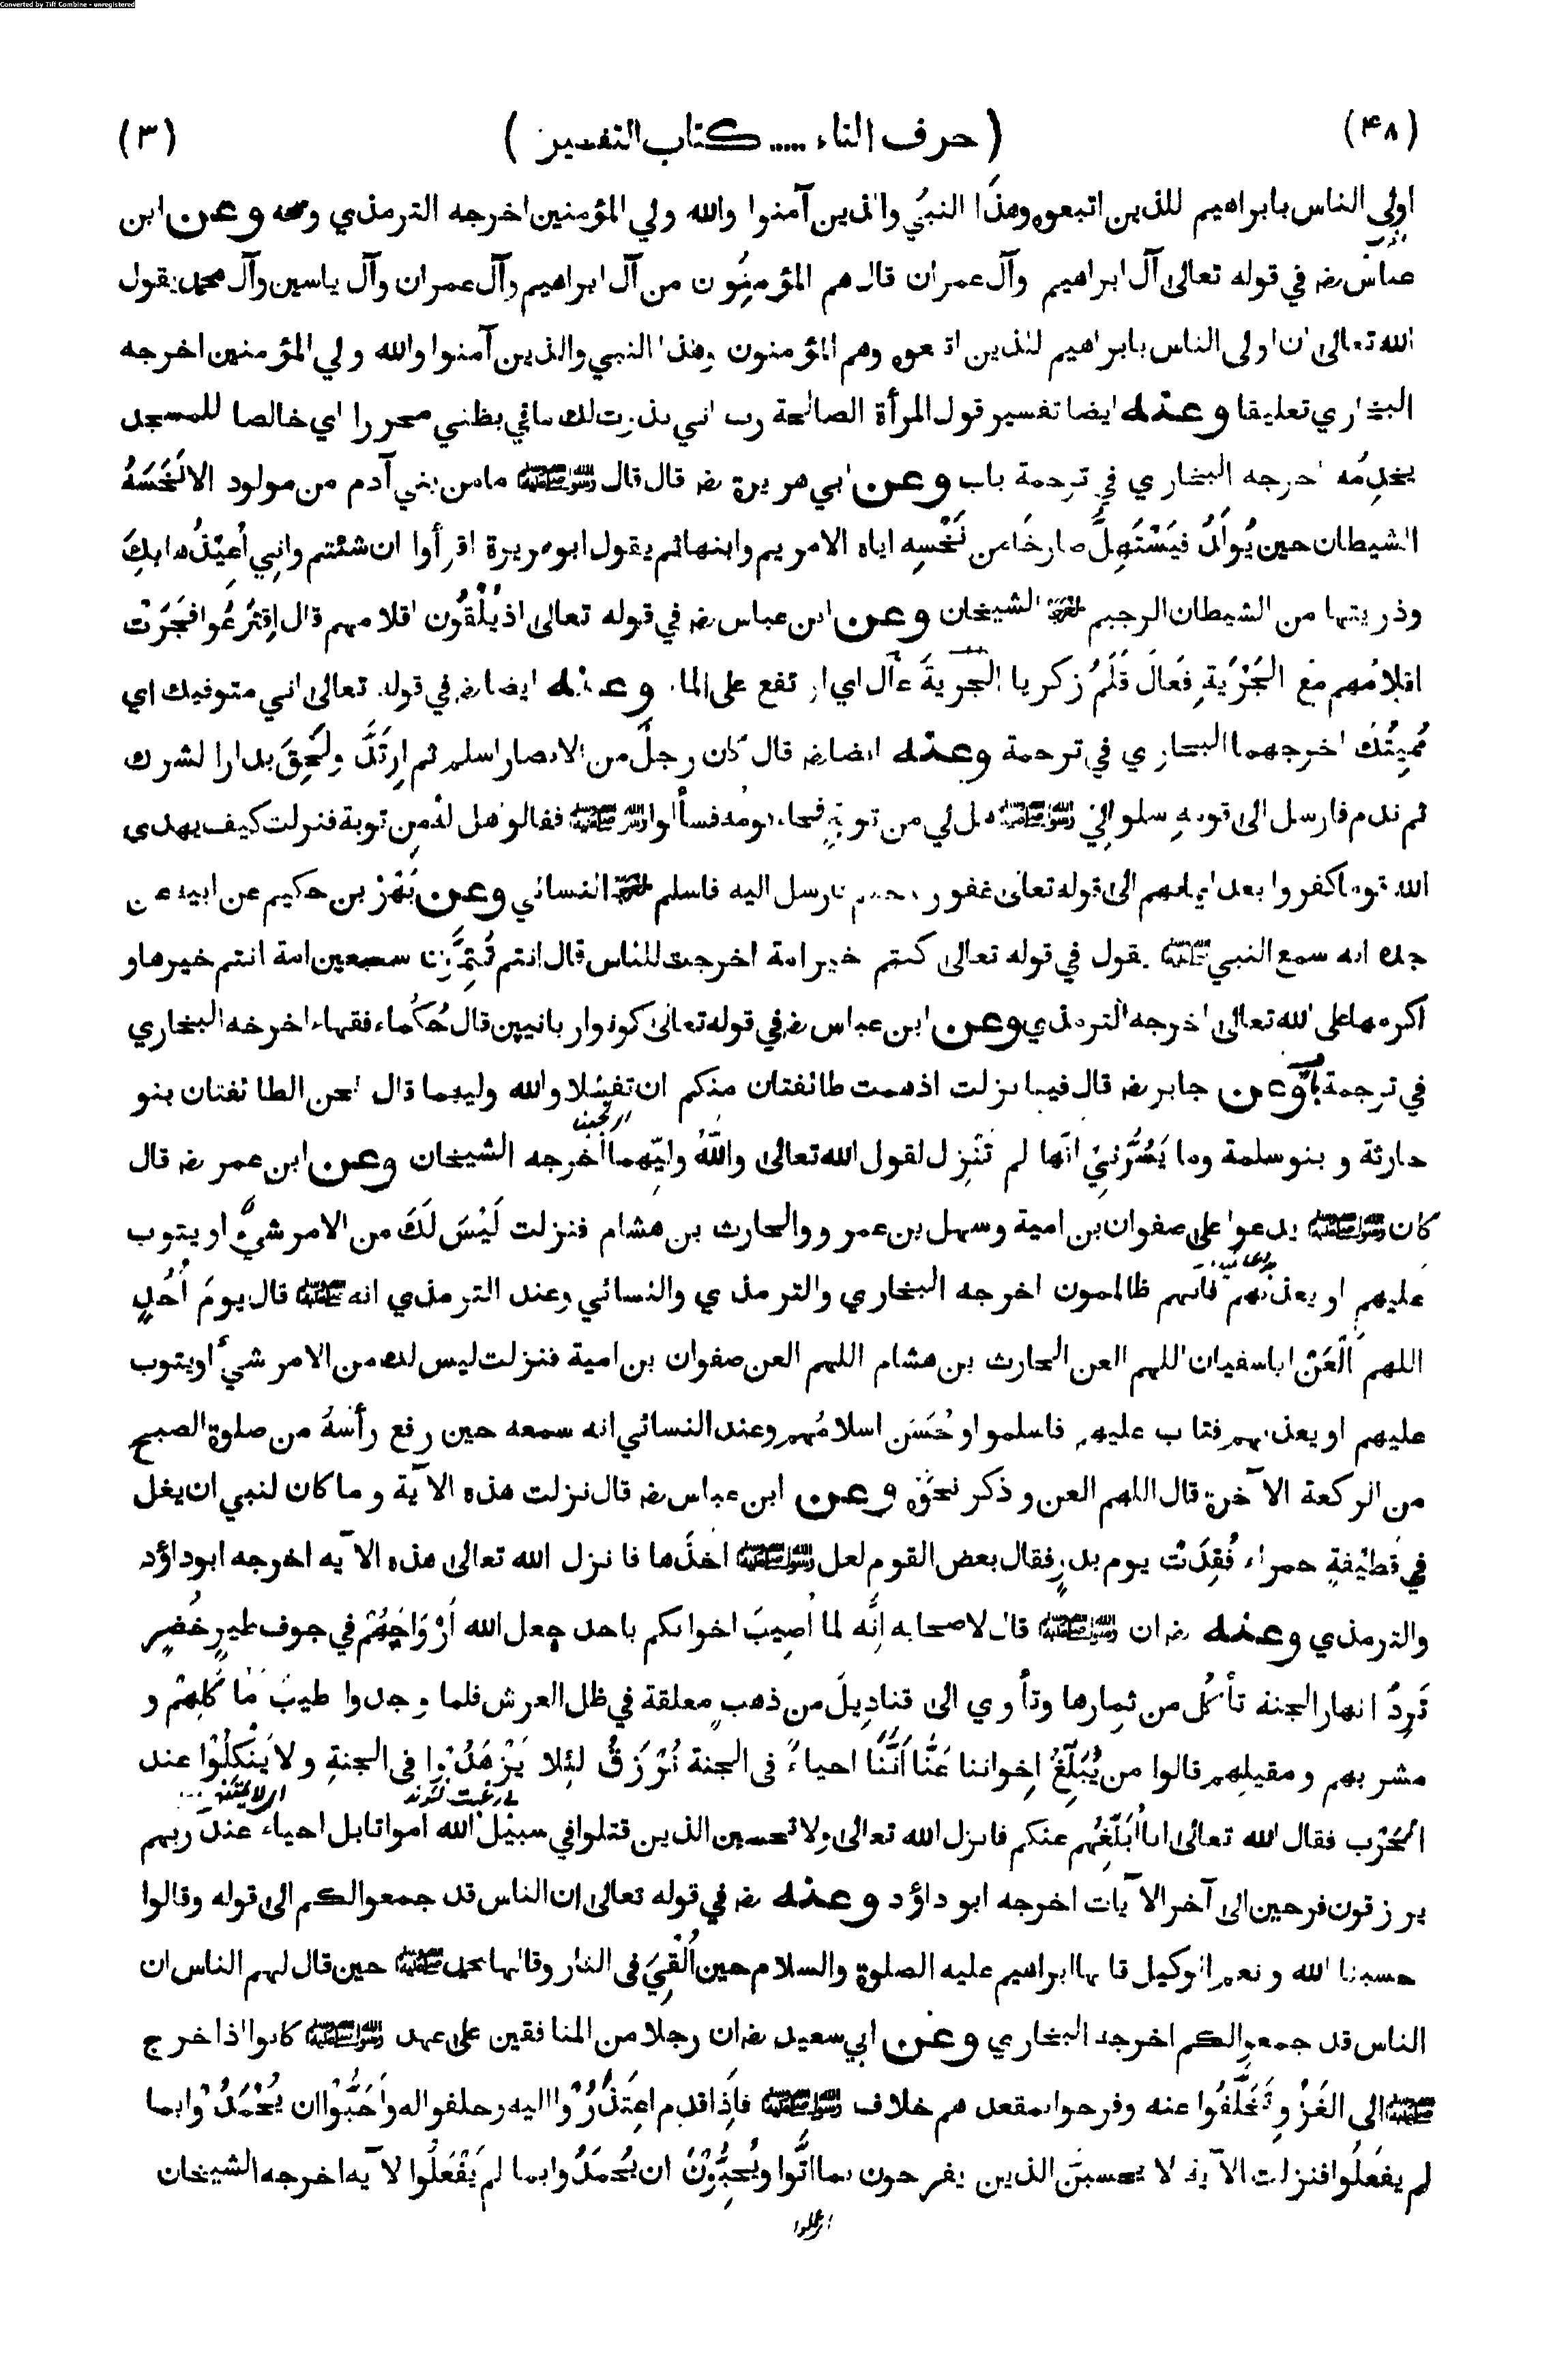 Converted by Tiff Combine - unregistered
(۴۸) (حرف التاء ..... كتاب التفسير) (۳)
اولى الناس بابراهيم للذين اتبعوه وهذا النبيُ والذين آمنوا والله ولي المؤمنين اخرجه الترمذي وصححه وعن ابن
عباس رضـ في قوله تعالى آل ابراهيم وآل عمران قال هم المؤمنُون من آل ابراهيم وآل عمران وآل ياسين وآل محمد يقول
الله تعالى ان اولى الناس بابراهيم للذين اتبعوه وهم المؤمنون وهذا النبي والذين آمنوا والله ولي المؤمنين اخرجه
البخاري تعليقا وعنه ايضا تفسير قول المرأة الصالحة رب اني نذرت لك مافي بطني محررا اي خالصا للمسجد
يخدِمُه اخرجه البخاري في ترجمة باب وعن ابي هريرة رضـ قال قال رسول الله ﷺ مامن بني آدم من مولود الا نَخَسَهُ
الشيطان حين يُولَدُ فيَسْتَهِلُّ صارخًا من نَخْسِه اياه الا مريم وابنها ثم يقول ابوهريرة اقرأوا ان شئتم وانِي أُعِيْذُها بكَ
وذريتها من الشيطان الرجيم اخرجه الشيخان وعن ابن عباس رضـ في قوله تعالى اذ يُلْقُون اقلامهم قال اِقْتَرَعُوا فجَرَتْ
اقلامُهم مع الجَرْيَةِ فعَالَ قَلَمُ زكريا الجَرْيةَ عال اي ارتفع على الماء وعنه ايضا رضـ في قوله تعالى اني متوفيك اي
مُمِيتُك اخرجهما البخاري في ترجمة وعنه ايضا رضـ قال كان رجلٌ من الانصار اسلم ثم ارتَدَّ ولَحِقَ بدار الشرك
ثم ندم فارسل الى قومه سلوا لِيْ رسول الله ﷺ هل لي من توبةٍ فجاء قومُه فسألوا رسول الله ﷺ فقالوا هل له من توبة فنزلت كيف يهدي
الله قوما كفروا بعد ايمانهم الى قوله تعالى غفور رحيم فارسل اليه فاسلم اخرجه النسائي وعن بَهْزْ بن حكيم عن ابيه عن
جده انه سمع النبي ﷺ يقول في قوله تعالى كنتم خير امة اخرجت للناس قال انتم تُتِمُّوْن سبعين امة انتم خيرها و
اكرمها على الله تعالى اخرجه الترمذي وعن ابن عباس رضـ في قوله تعالى كونوا ربانيين قال حُكماء فقهاء اخرجه البخاري
في ترجمة باب وعن جابر رضـ قال فينا نزلت اذ همت طائفتان منكم ان تفشلا والله وليهما قال نحن الطائفتان بنو
حارثة و بنو سلمة وما يَسُرُّنِيْ انّها لم تَنْزِل لقول الله تعالى واللهُ وليّهما اخرجه الشيخان وعن ابن عمر رضـ قال
كان رسول الله ﷺ يدعوا على صفوان بن امية وسهل بن عمرو والحارث بن هشام فنزلت لَيْسَ لَكَ من الامر شيٌ او يتوب
عليهم او يعذبهم فانهم ظالمون اخرجه البخاري والترمذي والنسائي وعند الترمذي انه ﷺ قال يومَ أُحُدٍ
اللهم الْعَنْ اباسفيان اللهم العن الحارث بن هشام اللهم العن صفوان بن امية فنزلت ليس لك من الامر شيٌ او يتوب
عليهم او يعذبهم فتاب عليهم فاسلموا وحَسُن اسلامُهم وعند النسائي انه سمعه حين رفع رأسهُ من صلوة الصبح
من الركعة الآخرة قال اللهم العن وذكر نحوَه وعن ابن عباس رضـ قال نزلت هذه الآية وما كان لنبي ان يغل
في قَطِيْفةٍ حمراء فُقِدَتْ يوم بدرٍ فقال بعض القوم لعل رسول الله ﷺ اخذَها فانزل الله تعالى هذه الآيه اخرجه ابوداؤد
والترمذي وعنه رضـ ان رسول الله ﷺ قال لاصحابه اِنَّه لما أُصيبَ اخوانكم باحد جعل الله أَرْوَاحَهُمْ في جوف طيرٍ خُضرٍ
تَرِدُ انهار الجنة تأكُل من ثمارها وتأوي الى قناديلَ من ذهبٍ معلقة في ظل العرش فلما وجدوا طيبَ مأكلِهمْ و
مشربهم ومقيلِهم قالوا من يُبَلِّغُ اِخواننا عَنَّا أَنَّنَا احياءٌ فى الجنة نُرْزَقُ لئلا يَزْهَدُوْا فى الجنةِ ولا يَنْكلُوْا عند
الحَرْب فقال الله تعالى انا أُبَلِّغُهم عنكم فانزل الله تعالى ولا تحسبن الذين قتلوا في سبيل الله امواتا بل احياء عند ربهم
يرزقون فرحين الى آخر الآيات اخرجه ابو داؤد وعنه رضـ في قوله تعالى ان الناس قد جمعوا لكم الى قوله وقالوا
حسبنا الله ونعم الوكيل قالها ابراهيم عليه الصلوة والسلام حين أُلْقِيَ فى النار وقالها محمد ﷺ حين قال لهم الناس ان
الناس قد جمعوا لكم اخرجه البخاري وعن ابي سعيد رضـ ان رجلا من المنافقين على عهد رسول الله ﷺ كانوا اذا خرج
رسول الله ﷺ الى الغَزْوِ تَخَلَّفُوا عنه وفرحوا بمقعدهم خلاف رسول الله ﷺ فاِذا قدم اعتَذَرُوْا اليه وحلفوا له وأَحَبُّوْا ان يُحْمَدُوْا بما
لم يفعَلُوا فنزلت الآية لا يحسبنَ الذين يفرحون بما اتَوا ويُحِبُّوْنَ ان يُحْمَدُوا بما لم يَفْعَلُوا الآيه اخرجه الشيخان